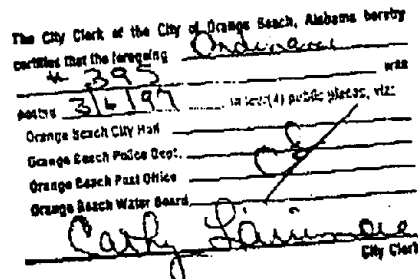 The City Clerk of the City of Orange Beach, Alabama hereby
certifies that the foregoing Ordinance
# 395 was
posted 3/6/97 in four (4) public places, viz:
Orange Beach City Hall
Orange Beach Police Dept.
Orange Beach Post Office
Orange Beach Water Board
Cathy
City Clerk